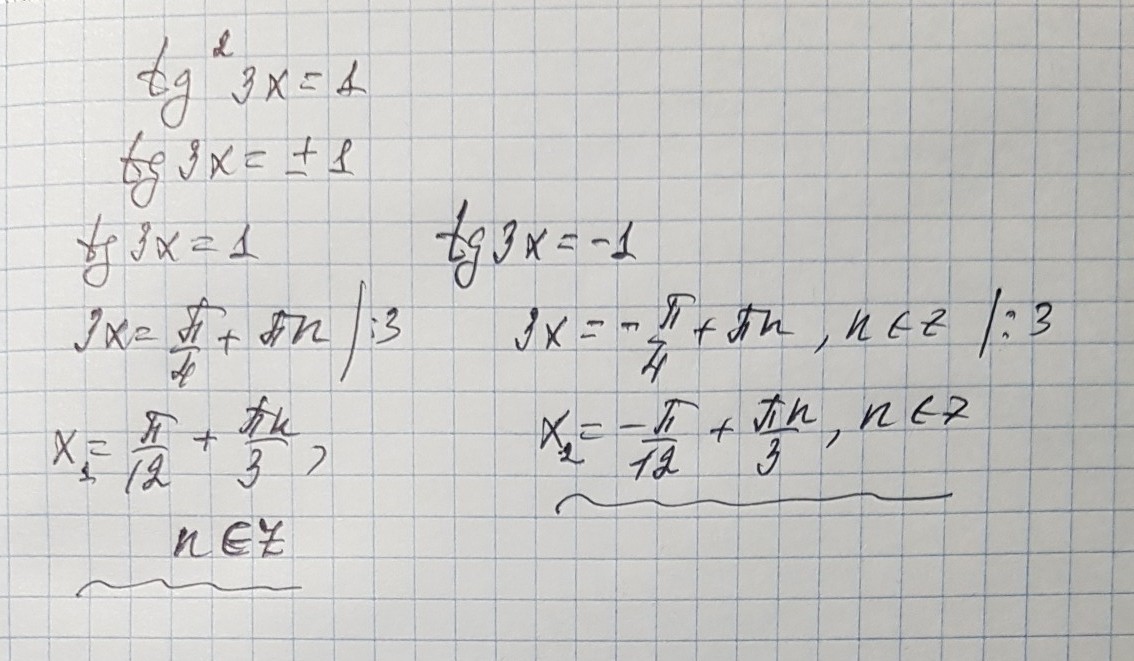 tg² 3x = 1
tg 3x = ± 1
tg 3x = 1
3x = π/4 + πn /:3
x₁ = π/12 + πn/3 ,
n ∈ Z
tg 3x = -1
3x = - π/4 + πn , n ∈ Z /:3
x₂ = -π/12 + πn/3 , n ∈ Z